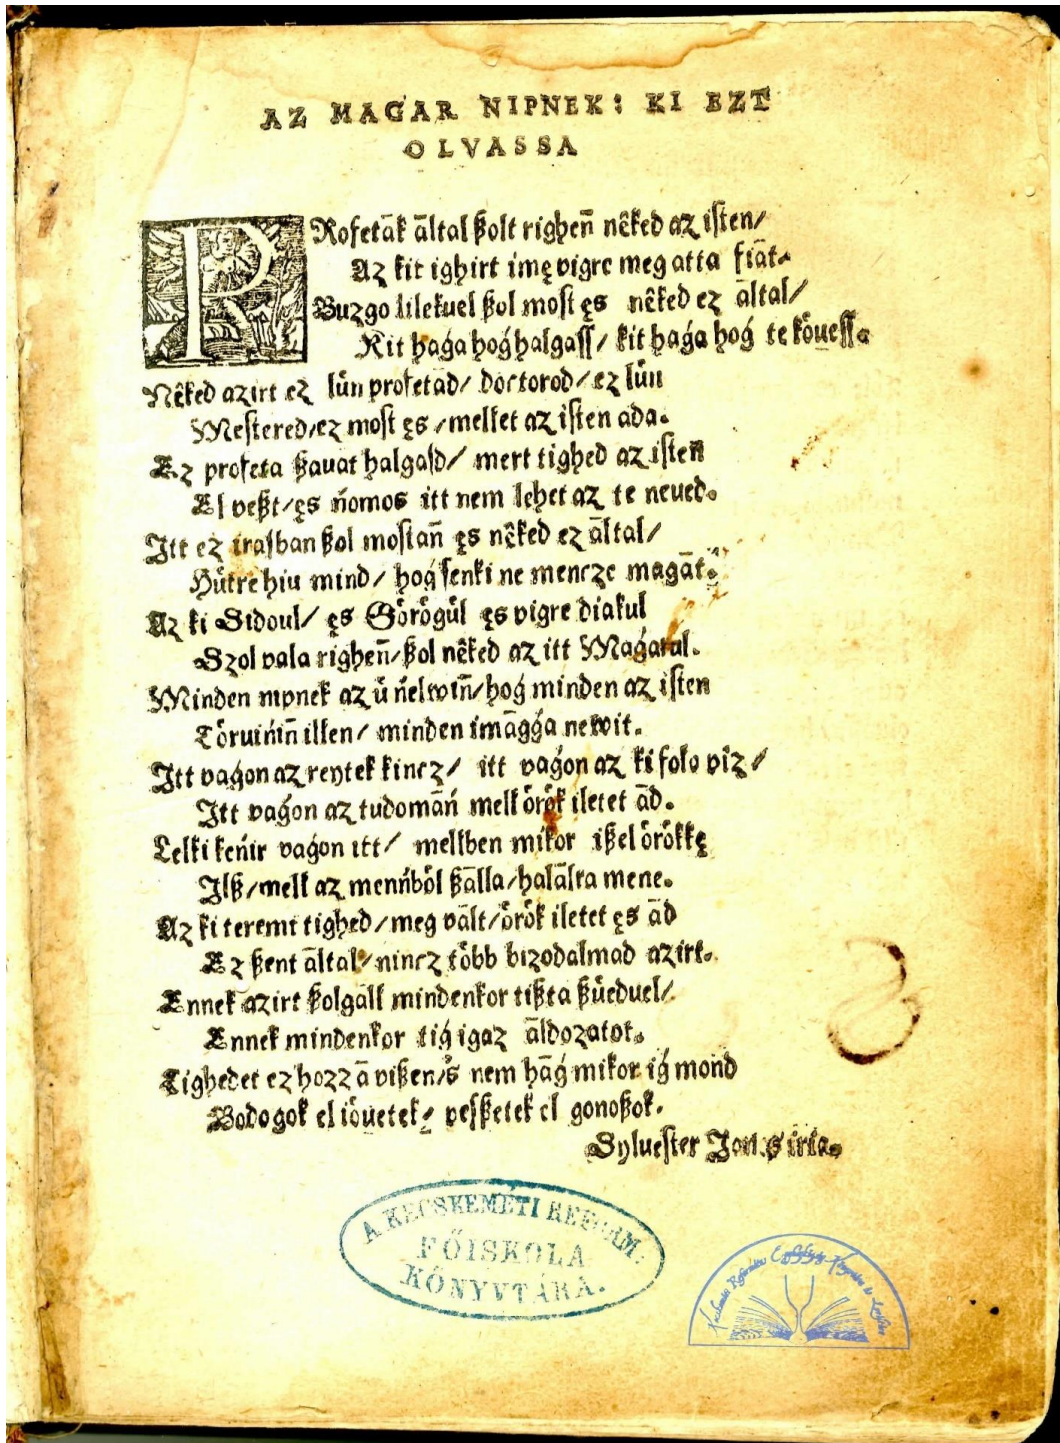 AZ MAGAR NIPNEK: KI EZT
OLVASSA
PRofetāk āltal ßolt righen̄ nêked az isten/
Az kit ighirt imę vigre meg atta fiāt.
Buzgo lilekuel ßol most ęs nêked ez āltal/
Kit haǵa hoǵ halgass/ kit haǵa hoǵ te köuess.
Nêked azirt ez lün profetad/ doctorod/ ez lün
Mestered/ez most ęs/mellet az isten ada.
Ez profeta ßauat halgasd/ mert tighed az isten
El veßt/ęs ńomos itt nem lehet az te neued.
Itt ez irasban ßol mostan̄ ęs nêked ez āltal/
Hütre hiu mind/ hoǵ senki ne mencze magāt.
Az ki Sidoul/ ęs Görögül ęs vigre diakul
Szol vala righen̄/ßol nêked az itt Maǵarul.
Minden nipnek az ü ńelwin̄/hoǵ minden az isten
Töruińin̄ illen/ minden imāgǵa newit.
Itt vaǵon az reytek kincz/ itt vaǵon az ki folo vîz/
Itt vaǵon az tudomāń mell örök iletet ād.
Lelki keńir vaǵon itt/ mellben mikor ißel örökkę
Ilß/mell az menńböl ßālla/halālra mene.
Az ki teremt tighed/meg vālt/örök iletet ęs ād
Ez ßent āltal/nincz több bizodalmad azirt.
Ennek azirt ßolgāll mindenkor tißta ßüeduel/
Ennek mindenkor tiǵ igaz āldozatot.
Tighedet ez hozzā vißen/s̓ nem hāǵ mikor iǵ mond
Bodogok el iöuetek/ vesßetek el gonoßok.
Syluester iria.
A KECSKEMÉTI REFORM.
FŐISKOLA
KÖNYVTÁRA.